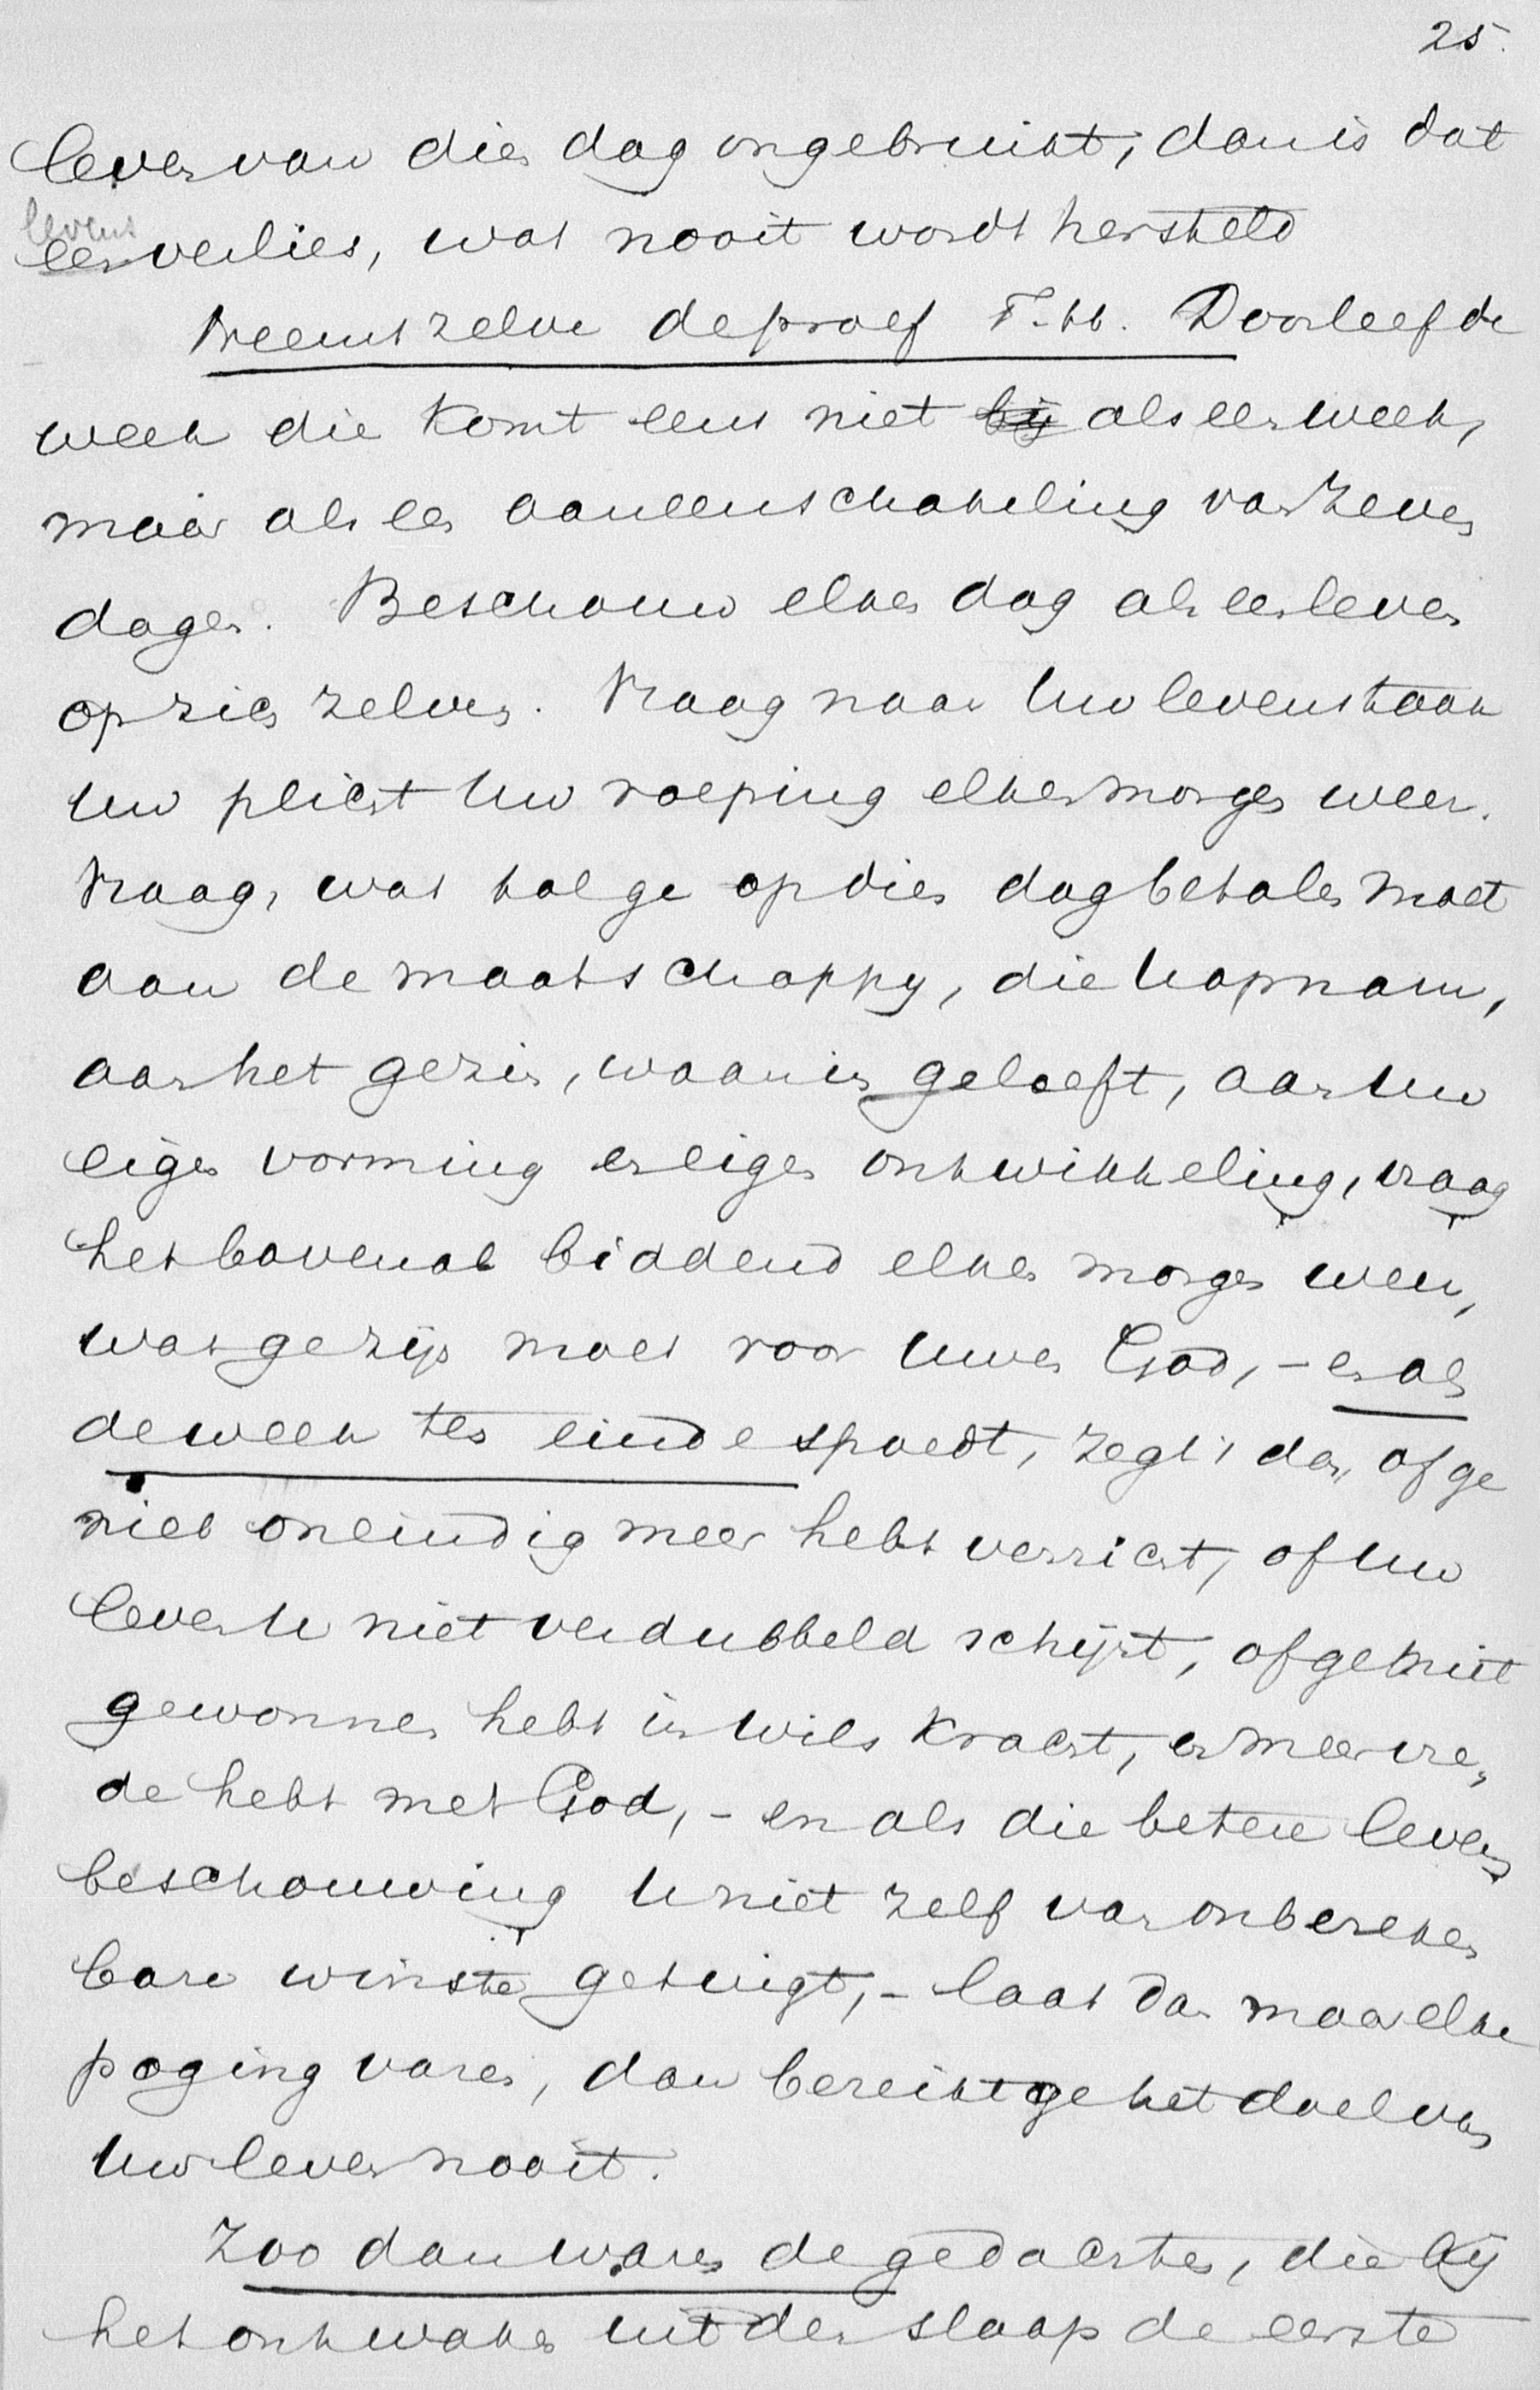 25.
leven van dien dag ongebruikt, dan is dat
levens
een verlies, wat nooit wordt hersteld
Neemt zelve de proef T. bb. Doorleef de
week die komt eens niet bij als een week,
maar als een aaneenschakeling van zeven
dagen. Beschouw elken dag als een leven
op zich zelven. Vraag naar Uw levenstaak
Uw plicht Uw roeping elken morgen weer.
Vraag, wat tol ge op dien dag betalen moet
aan de maatschappy, die U opnam,
aan het gezin, waarin ge leeft, aan Uw
eigen vorming en eigen ontwikkeling, vraag
het bovenal biddend elken morgen weer,
wat ge zijn moet voor Uwen God, - en als
de week ten einde spoedt, zegt 't dan, of ge
niet oneindig meer hebt verricht, of Uw
leven U niet verdubbeld schijnt, of ge niet
gewonnen hebt in wils kracht, en meer vre„
de hebt met God, - en als die betere levens
beschouwing U niet zelf van onbereken
bare winste getuigt, - laat dan maar elke
poging varen, dan bereikt ge het doel van
Uw leven nooit.
Zoo dan waren de gedachten, die bij
het ontwaken uit den slaap de eerste